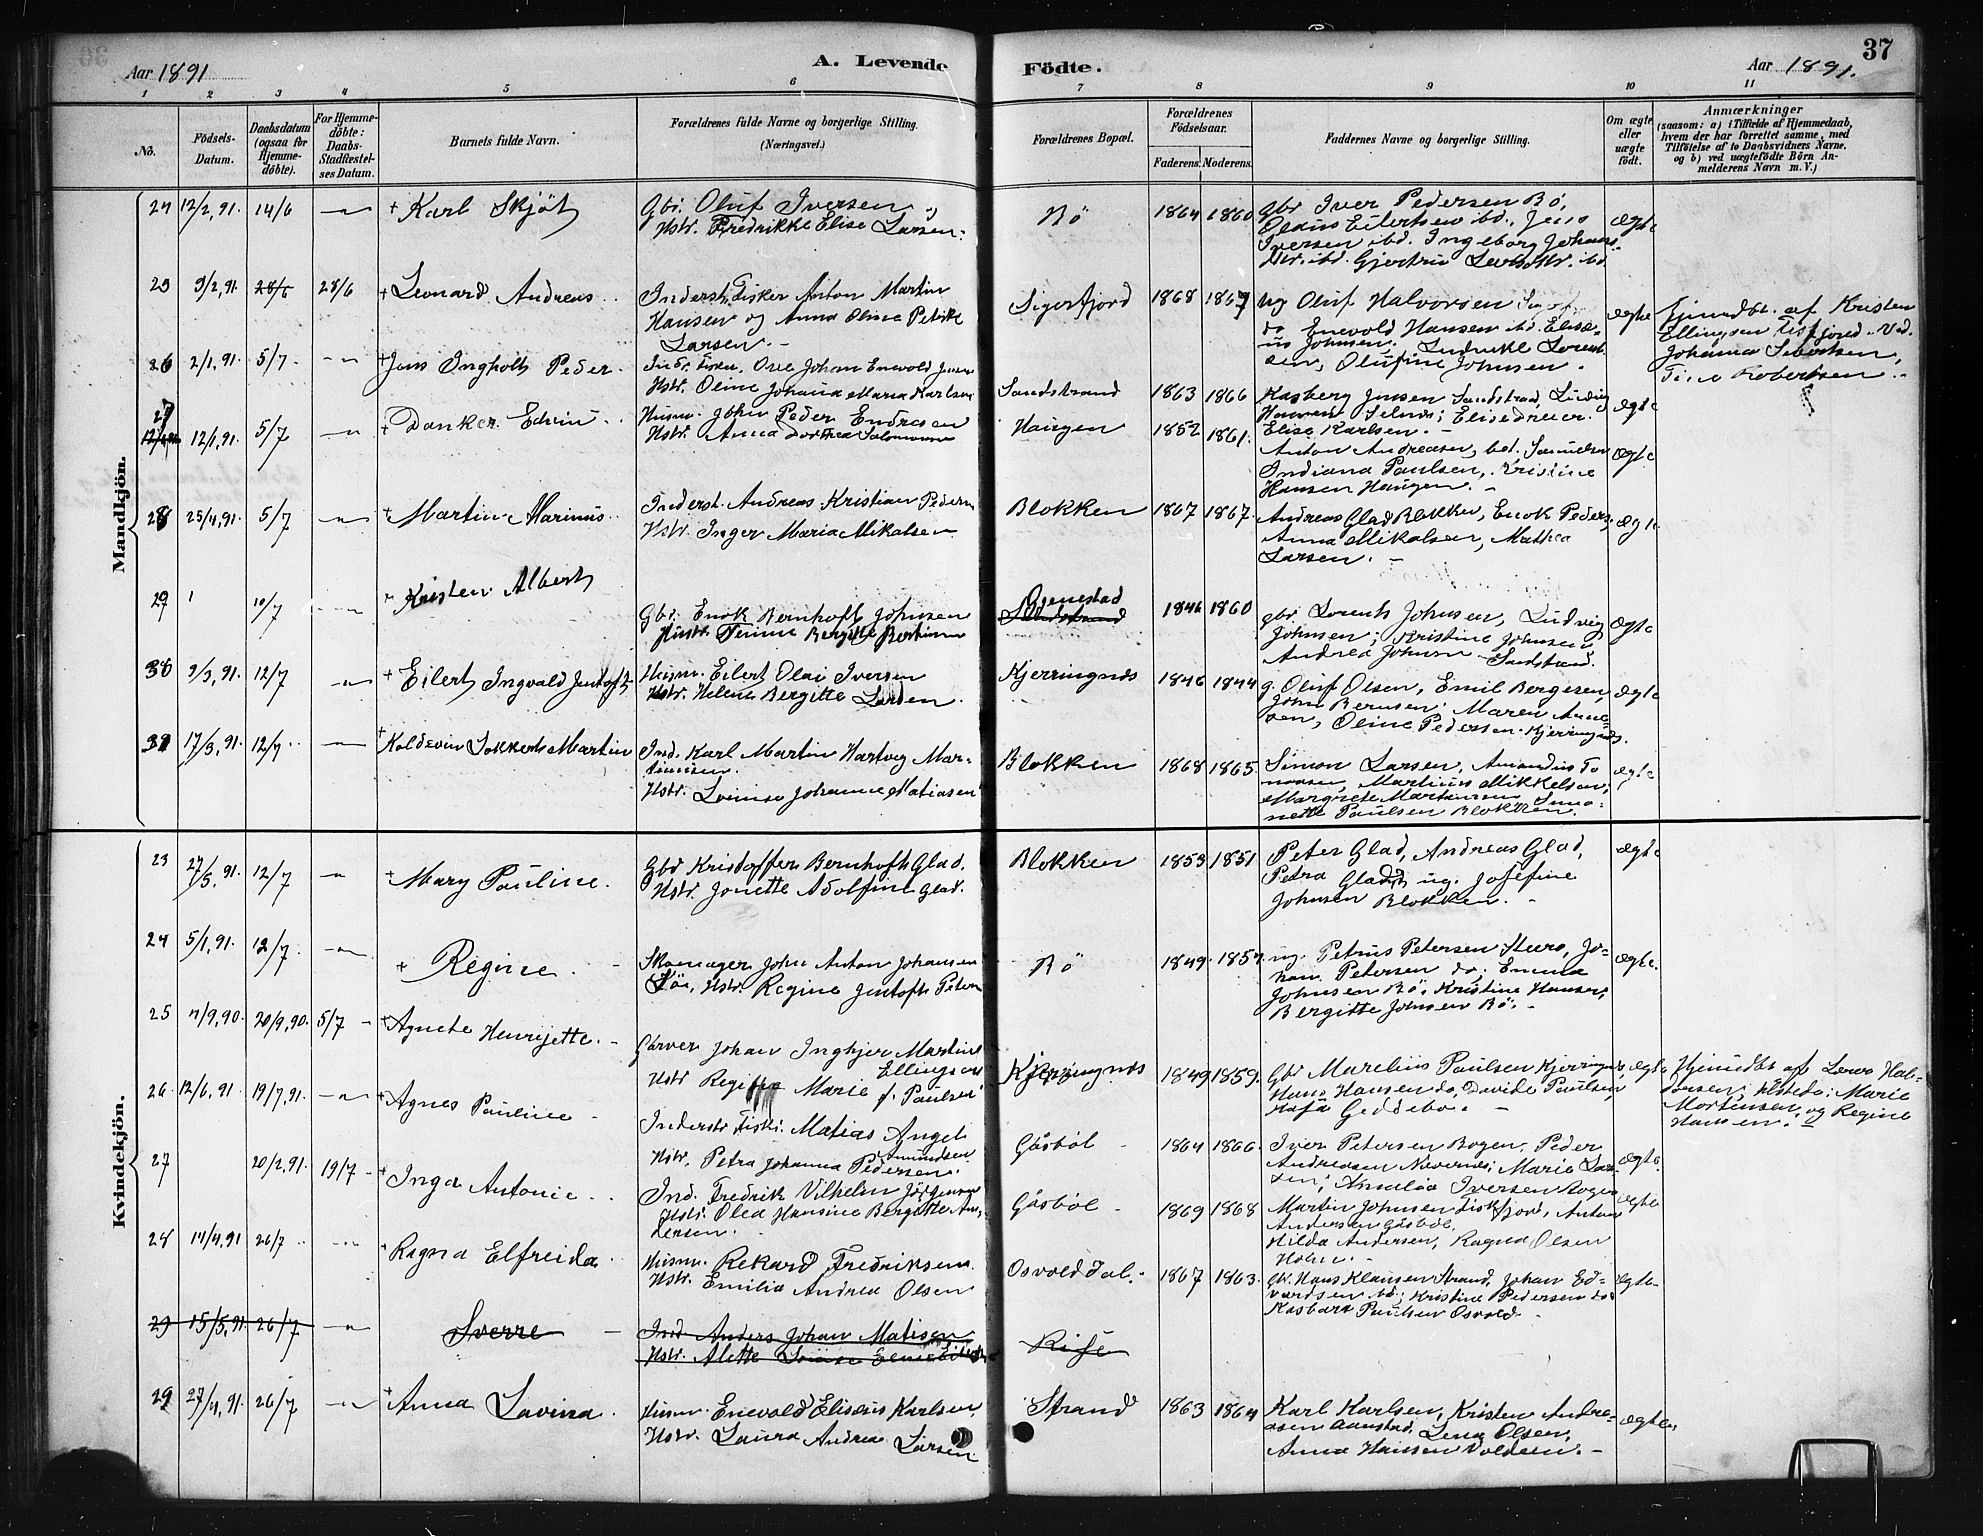 Aar 1891
A. Levende
Fødte.
Aar 1891.
37
1 2 3 4 5 6 7 8 9 10 11
No.
Födsels-Datum.
Daabsdatum (ogsaa for Hjemmedöbte).
For Hjemmedöbte: Daabs-Stadfæstelses Datum.
Barnets fulde Navn.
Forældrenes fulde Navne og borgerlige Stilling. (Næringsvei.)
Forældrenes Bopæl.
Forældrenes Födselsaar.
Faderens. Moderens.
Faddernes Navne og borgerlige Stilling.
Om ægte eller uægte födt.
Anmærkninger
(saasom: a) i Tilfælde af Hjemmedaab, hvem der har forrettet samme, med Tilföielse af to Daabsvidners Navne, og b) ved uægtefödte Börn Anmelderens Navn m. V.)
Mandkjön.
24 12/2, 91. 14/6 —"— + Karl Skjöt
Gbr. Oluf Iversen
Hstr. Fredrikke Elise Larsen.
Bö 1864 1860
Gbr Iver Pedersen Bö,
Olaus Eilertsen ibd., Jens
Iversen ibd. Ingeborg Johans
dtr. ibd. Gjertrud
ægte
25 9/2, 91. 28/6 28/6 + Leonard Andreas
Inderst. Fisker Anton Martin
Hansen og Anna Oline Petrike
Larsen. —
Sigerfjord 1868 1867
ug Oluf Halvorsen
do Enevold Hansen ibd. Elise-
us Johnsen. Ludvikke Lorent-
sen, Olufine Johnsen.
ægte
Hjemdbt. af Kristen
Ellingsen Fiskfjord. Vid.
Johanna Sivertsen,
Robertsen.
26 2/1, 91. 5/7 —"— + Jens Ingholt Peder
Ind. Fisker, Ove Johan Enevold Jensen
Hstr. Oline Johanna Maria Karlsen
Sandstrand 1863 1866
Kasberg Jensen Sandstrand, Ludvig
Hansen Selnes; Elise Dreier.
Elise Karlsen. —
ægte
27 12/1, 91. 5/7 —"— + Danker Edvin
Husm. John Peder Endresen
Hstr. Anna Dorthea Salomonsen
Haugen 1852 1861.
Anton Andreasen, bet. Samuelsen
Indiana Paulsen, Kristine
Hansen Haugen. —
ægte
28 25/4, 91. 5/7 —"— + Martin Marinus
Inderst. Andreas Kristian Pedersen
Hstr. Inger Maria Mikalsen
Blokken 1867 1867.
Andreas Glad Blokken, Enok Peders,
Anna Mikalsen, Mathea
Larsen. —
ægte
29 1 10/7 —"— Kristen Albert
Gbr. Enok Bernhoft Johnsen
Hustr. Tennie Bergitte Bertinus
Sandstrand 1846 1860
gbr. Lorents Johnsen, Ludvig
Johnsen; Kristine Johnsen
Andrea Johnsen Sandstrand.
ægte
30 9/3, 91. 12/7 —"— + Eilert Ingvald Jentoft
Husm. Eilert Olai Iversen
Hstr. Helene Bergitte Larsen.
Kjerringnes 1846 1844
g. Oluf Olsen, Emil Bergesen,
John Berntsen. Maren Arne-
sen, Oline Pedersen Kjerringnes.
ægte
31 17/3, 91. 12/7 —"— + Koldevin Martin
Ind. Karl Martin Hartvig Mar-
tinusen.
Hstr. Lovise Johanne Matiasen
Blokken 1868 1865.
Simon Larsen, Amandus To
masen, Martinus Mikkelsen,
Margrete Martinsen Simo-
nette Paulsen Blokken.
ægte
Kvindekjön.
23 27/5, 91. 12/7 —"— + Mary Pauline.
Gbr Kristoffer Bernhoft Glad.
Hstr. Jonette Adolfine Glad.
Blokken 1853 1851
Peter Glad, Andreas Glad,
Petra Glad, ug. Josefine
Johnsen Blokken. —
ægte
24 5/1, 91. 12/7 —"— + Regine
Skomager John Anton Johansen
Hstr. Regine Jentoft Peters
Bö 1849. 1857.
ug Petrus Petersen Steiro, Jo-
han Petersen do; Emma
Johnsen Bö. Kristine Hansen,
Bergitte Johnsen Bö. —
ægte.
25 4/9, 90. 20/9, 90. 5/7 — + Agnete Henrijette. —
Garver Johan Inghjer Martin
Ellingsen
Hstr Regine Marie f. Paulsen
Kjerringnes 1849 1859.
Gbr Marelius Paulsen Kjerringnes,
Hans Hansen do, Davida Paulsen,
Geddebo. —
ægte
Hjemdbt af Hal-
vorsen, Marie
Mortensen, og Regine
Hansen. —
26 12/6, 91. 19/7, 91. —"— + Agnes Pauline —
Inderst. Fisk. Matias Angel
Amundsen
Hstr. Petra Johanna Pedersen.
Gåsböl — 1864 1866.
Iver Petersen Bogen, Peder
Andreasen Nevernes; Marie Lar-
sen; Amalia Iversen Bogen
ægte.
27 20/2, 91. 19/7 — + Inga Antonie
Ind. Fredrik Vilhelm Jörgensen
Hstr. Olea Hansine Bergitte An-
dersen.
Gåsböl — 1869 1868
Martin Johnsen Fiskfjord, Anton
Andersen Gåsböl.
Hilda Andersen, Ragna Olsen
Holm. —
ægte
28 14/4, 91 26/7 —"— Ragna Elfreida
Husm. Rekard Fredriksen.
Hstr. Emilia Andrea Olsen
Osvolddal. 1867 1863.
gk. Hans Klausen Strand, Johan Ed-
vardsen ibd; Kristine Pedersen do.
Kasbara Paulsen Osvold —
ægte
29 15/5, 91 26/7 —"— Sverre —
Ind Anders Johan Matisen
Hstr. Alette Lovise
Rise
29 27/4, 91. 26/7 —"— + Anna Lavina.
Husm. Enevold Eliseus Karlsen
Hstr. Laura Andrea Larsen
Strand 1863 1864
Karl Karlsen, Kristen Andre-
asen Aanstad, Lena Olsen,
Anna Hansen Voldsen. —
ægte